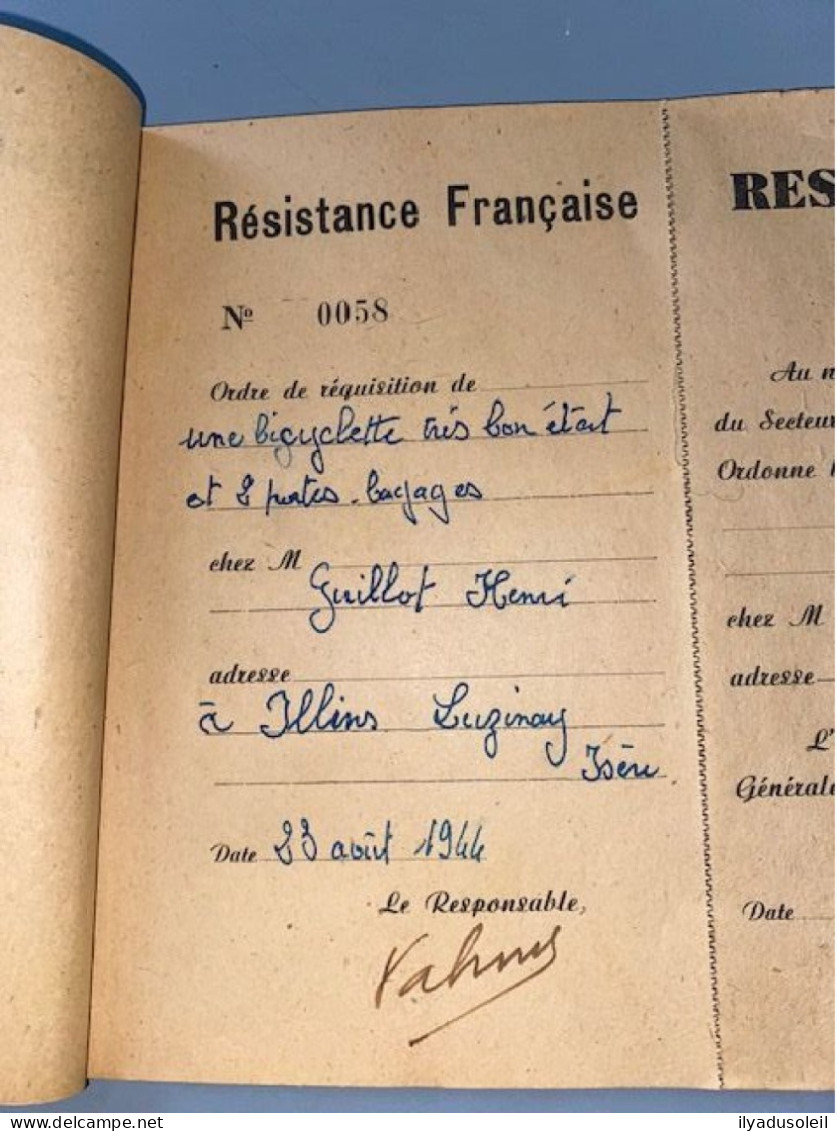 Résistance Française
Nº 0058
Ordre de réquisition de
une bicyclette très bon état
et 2 portes-bagages
chez M
Guillot Henri
adresse
à Illins Luzinay
Isère.
Date 23 août 1944
Le Responsable,
RES
Au n
du Secteur
Ordonne
chez M
adresse
L'
Générale
Date
delcampe.net
ilyadusoleil